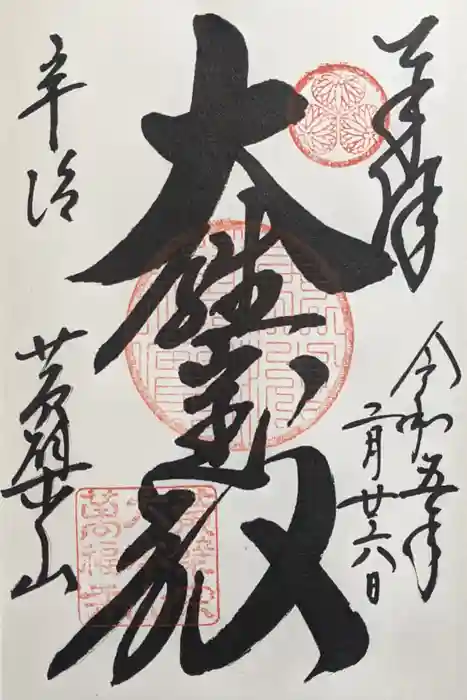 奉拝
令和五年
二月廿六日
大雄宝殿
宇治
黄檗山
萬福寺